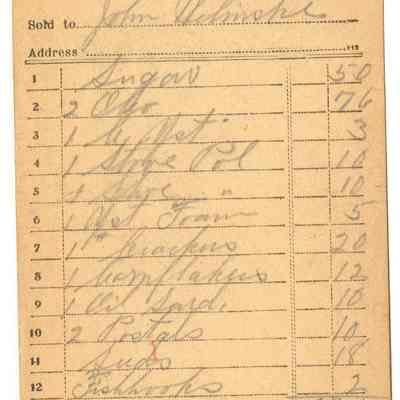 Sold to John
Address
1 Sugar 50
2 2 Oleo 76
3 1 3
4 1 Stove Pol 10
5 1 Shoe " 10
6 1 Yst Foam 5
7 1# Krackers 20
8 1 Cornflakes 12
9 1 Oil Sard. 10
10 2 Postals 10
11 18
12 Fishhooks 2